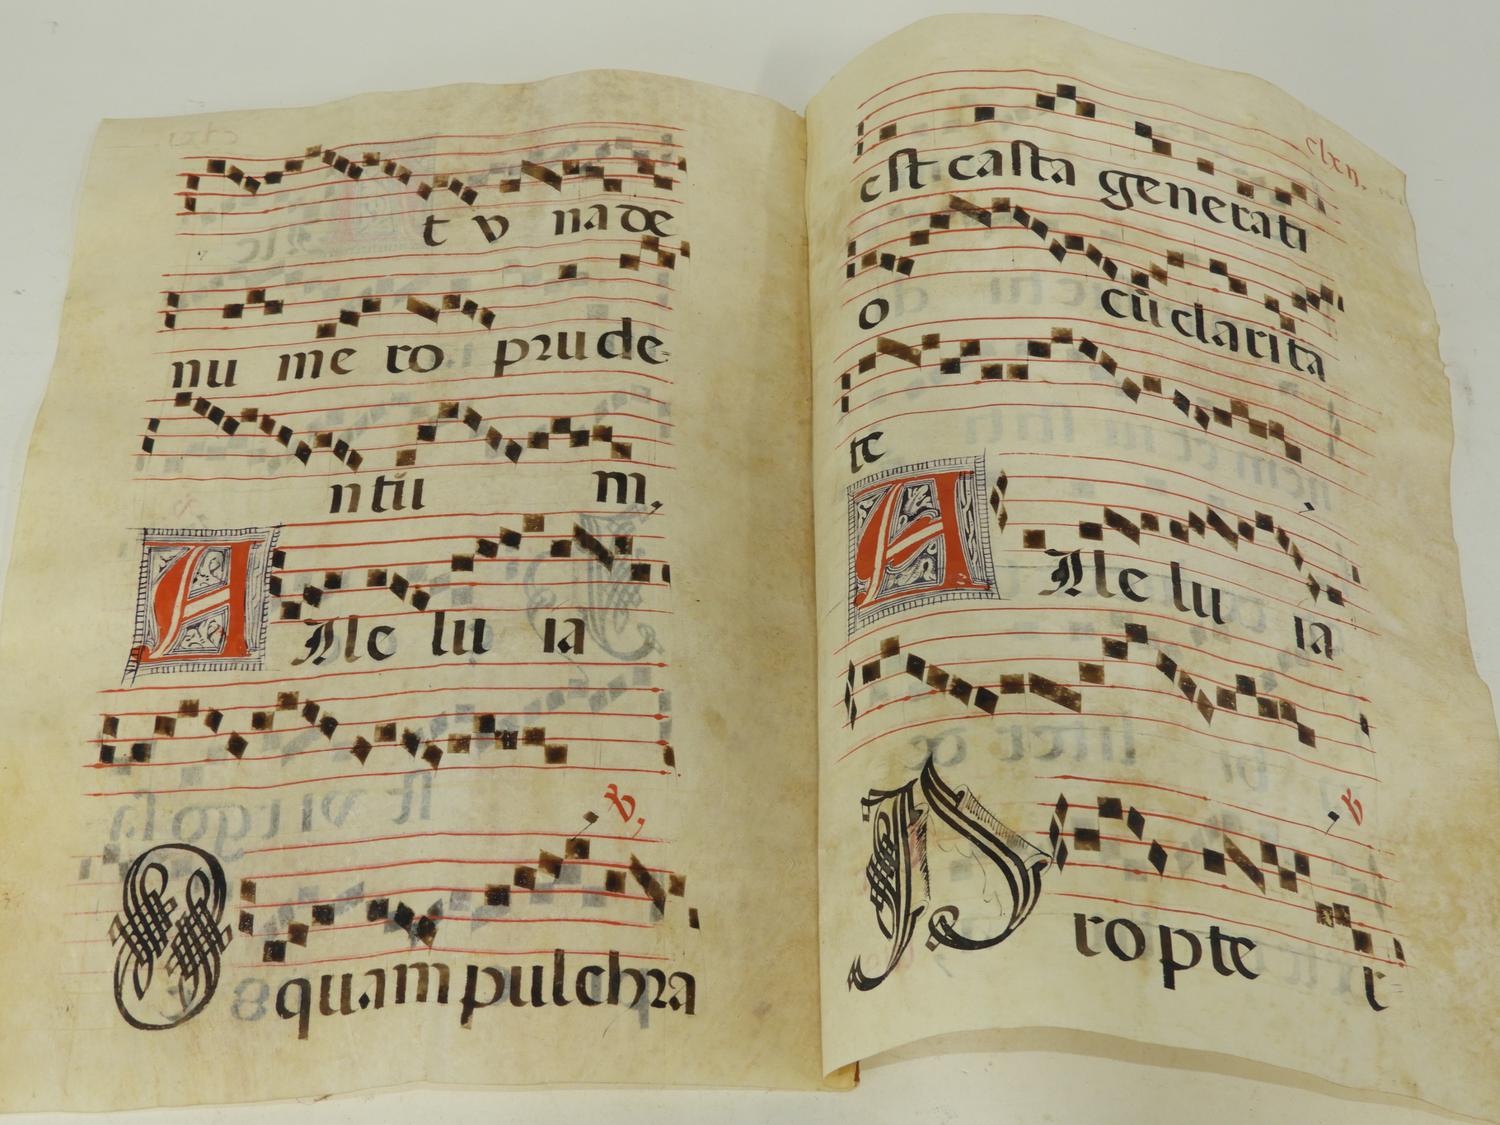 t v na de
nu me ro prude
ntiū m,
Alle lu ia
℣,
O quam pulchra
clxii.
est casta generati
o cū clarita
te
Alle lu ia
℣
Propte r